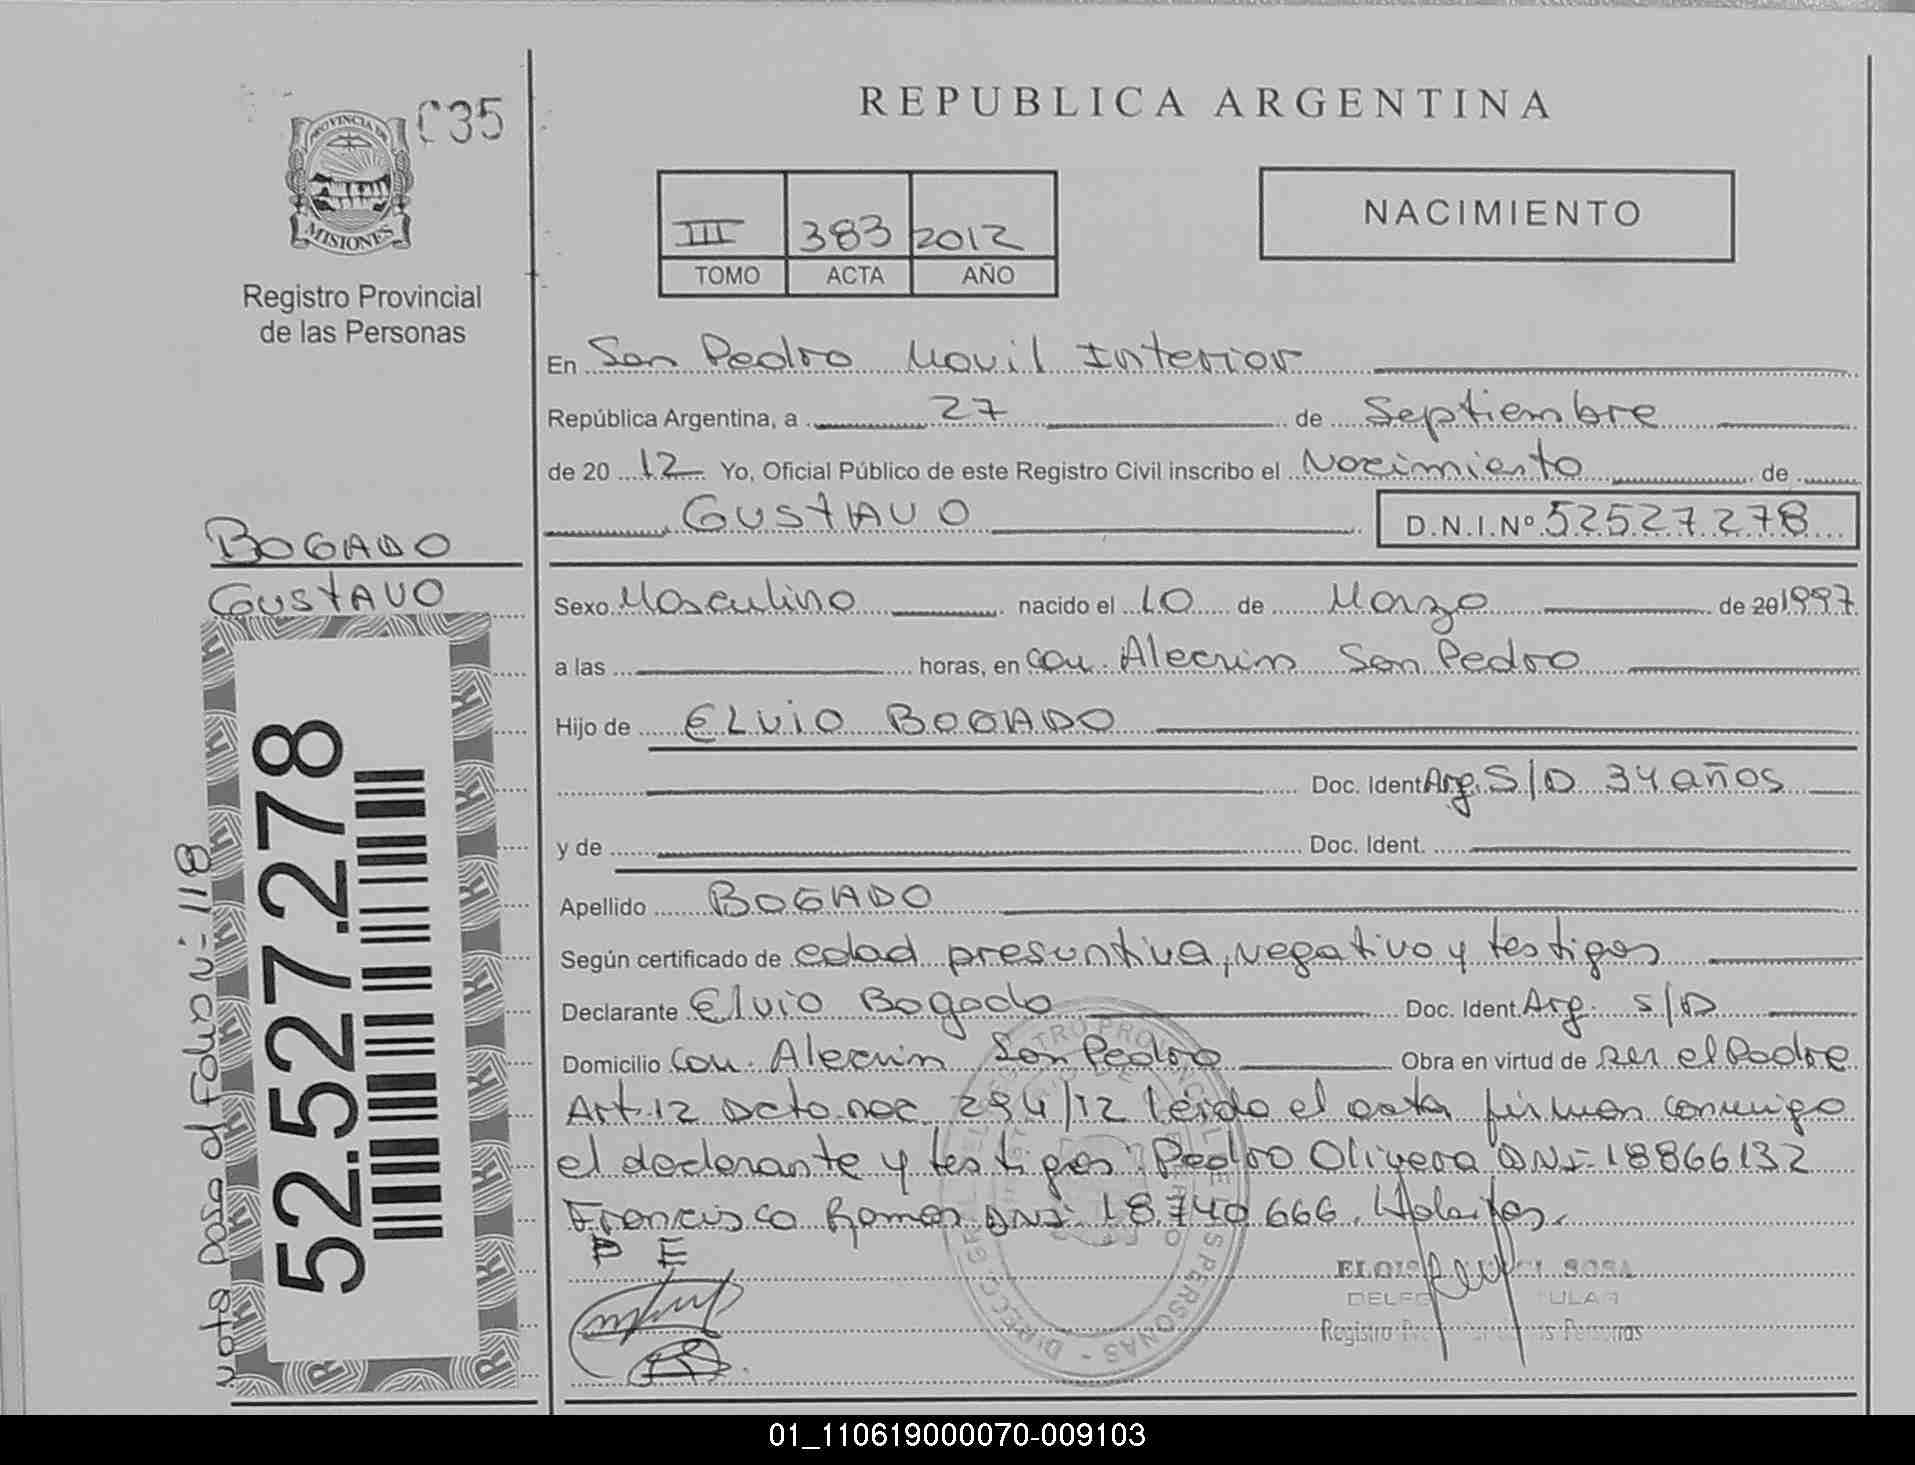 035
PROVINCIA DE
MISIONES
Registro Provincial
de las Personas
BOGADO
GUSTAVO
52.527.278
Nota pasa al Folio Nº 118
REPUBLICA ARGENTINA
III 383 2012
TOMO ACTA AÑO
NACIMIENTO
En San Pedro Movil Interior
República Argentina, a 27 de Septiembre
de 20 12 Yo, Oficial Público de este Registro Civil inscribo el Nacimiento de
GUSTAVO D.N.I.Nº 52527278
Sexo Masculino nacido el 10 de Marzo de 20 1997
a las horas, en Com. Alecrin San Pedro
Hijo de ELVIO BOGADO
Doc. Ident. Arg. S/D 34 años
y de Doc. Ident.
Apellido BOGADO
Según certificado de edad presuntiva, negativo y testigos
Declarante Elvio Bogado Doc. Ident. Arg. S/D
Domicilio Com. Alecrin San Pedro Obra en virtud de ser el Padre
Art. 12 Dcto. nac. 294/12 leida el acta firman conmigo
el declarante y testigos: Pedro Olivera DNI- 18866132
Francisco Ramos DNI- 18.740.666.
P E
SOSA
Registro
01_110619000070-009103